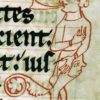 ctes
cient.
t: ius